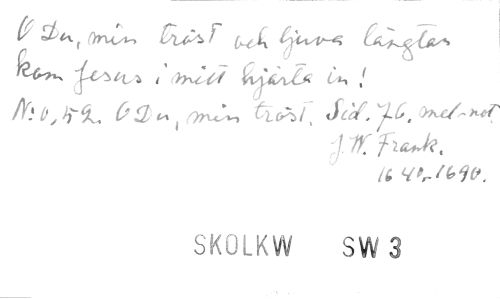 O Du, min tröst och ljuva längtan
kom Jesus i mitt hjärta in!
No: 0,52. O Du, min tröst. Sid. 76. mel-not.
J. W. Frank.
1640-1690.
SKOLKW SW 3